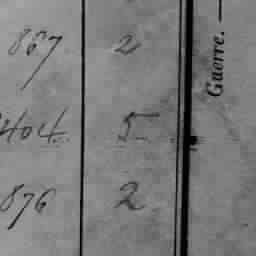 867 2
404 5
876 2
Guerre. —